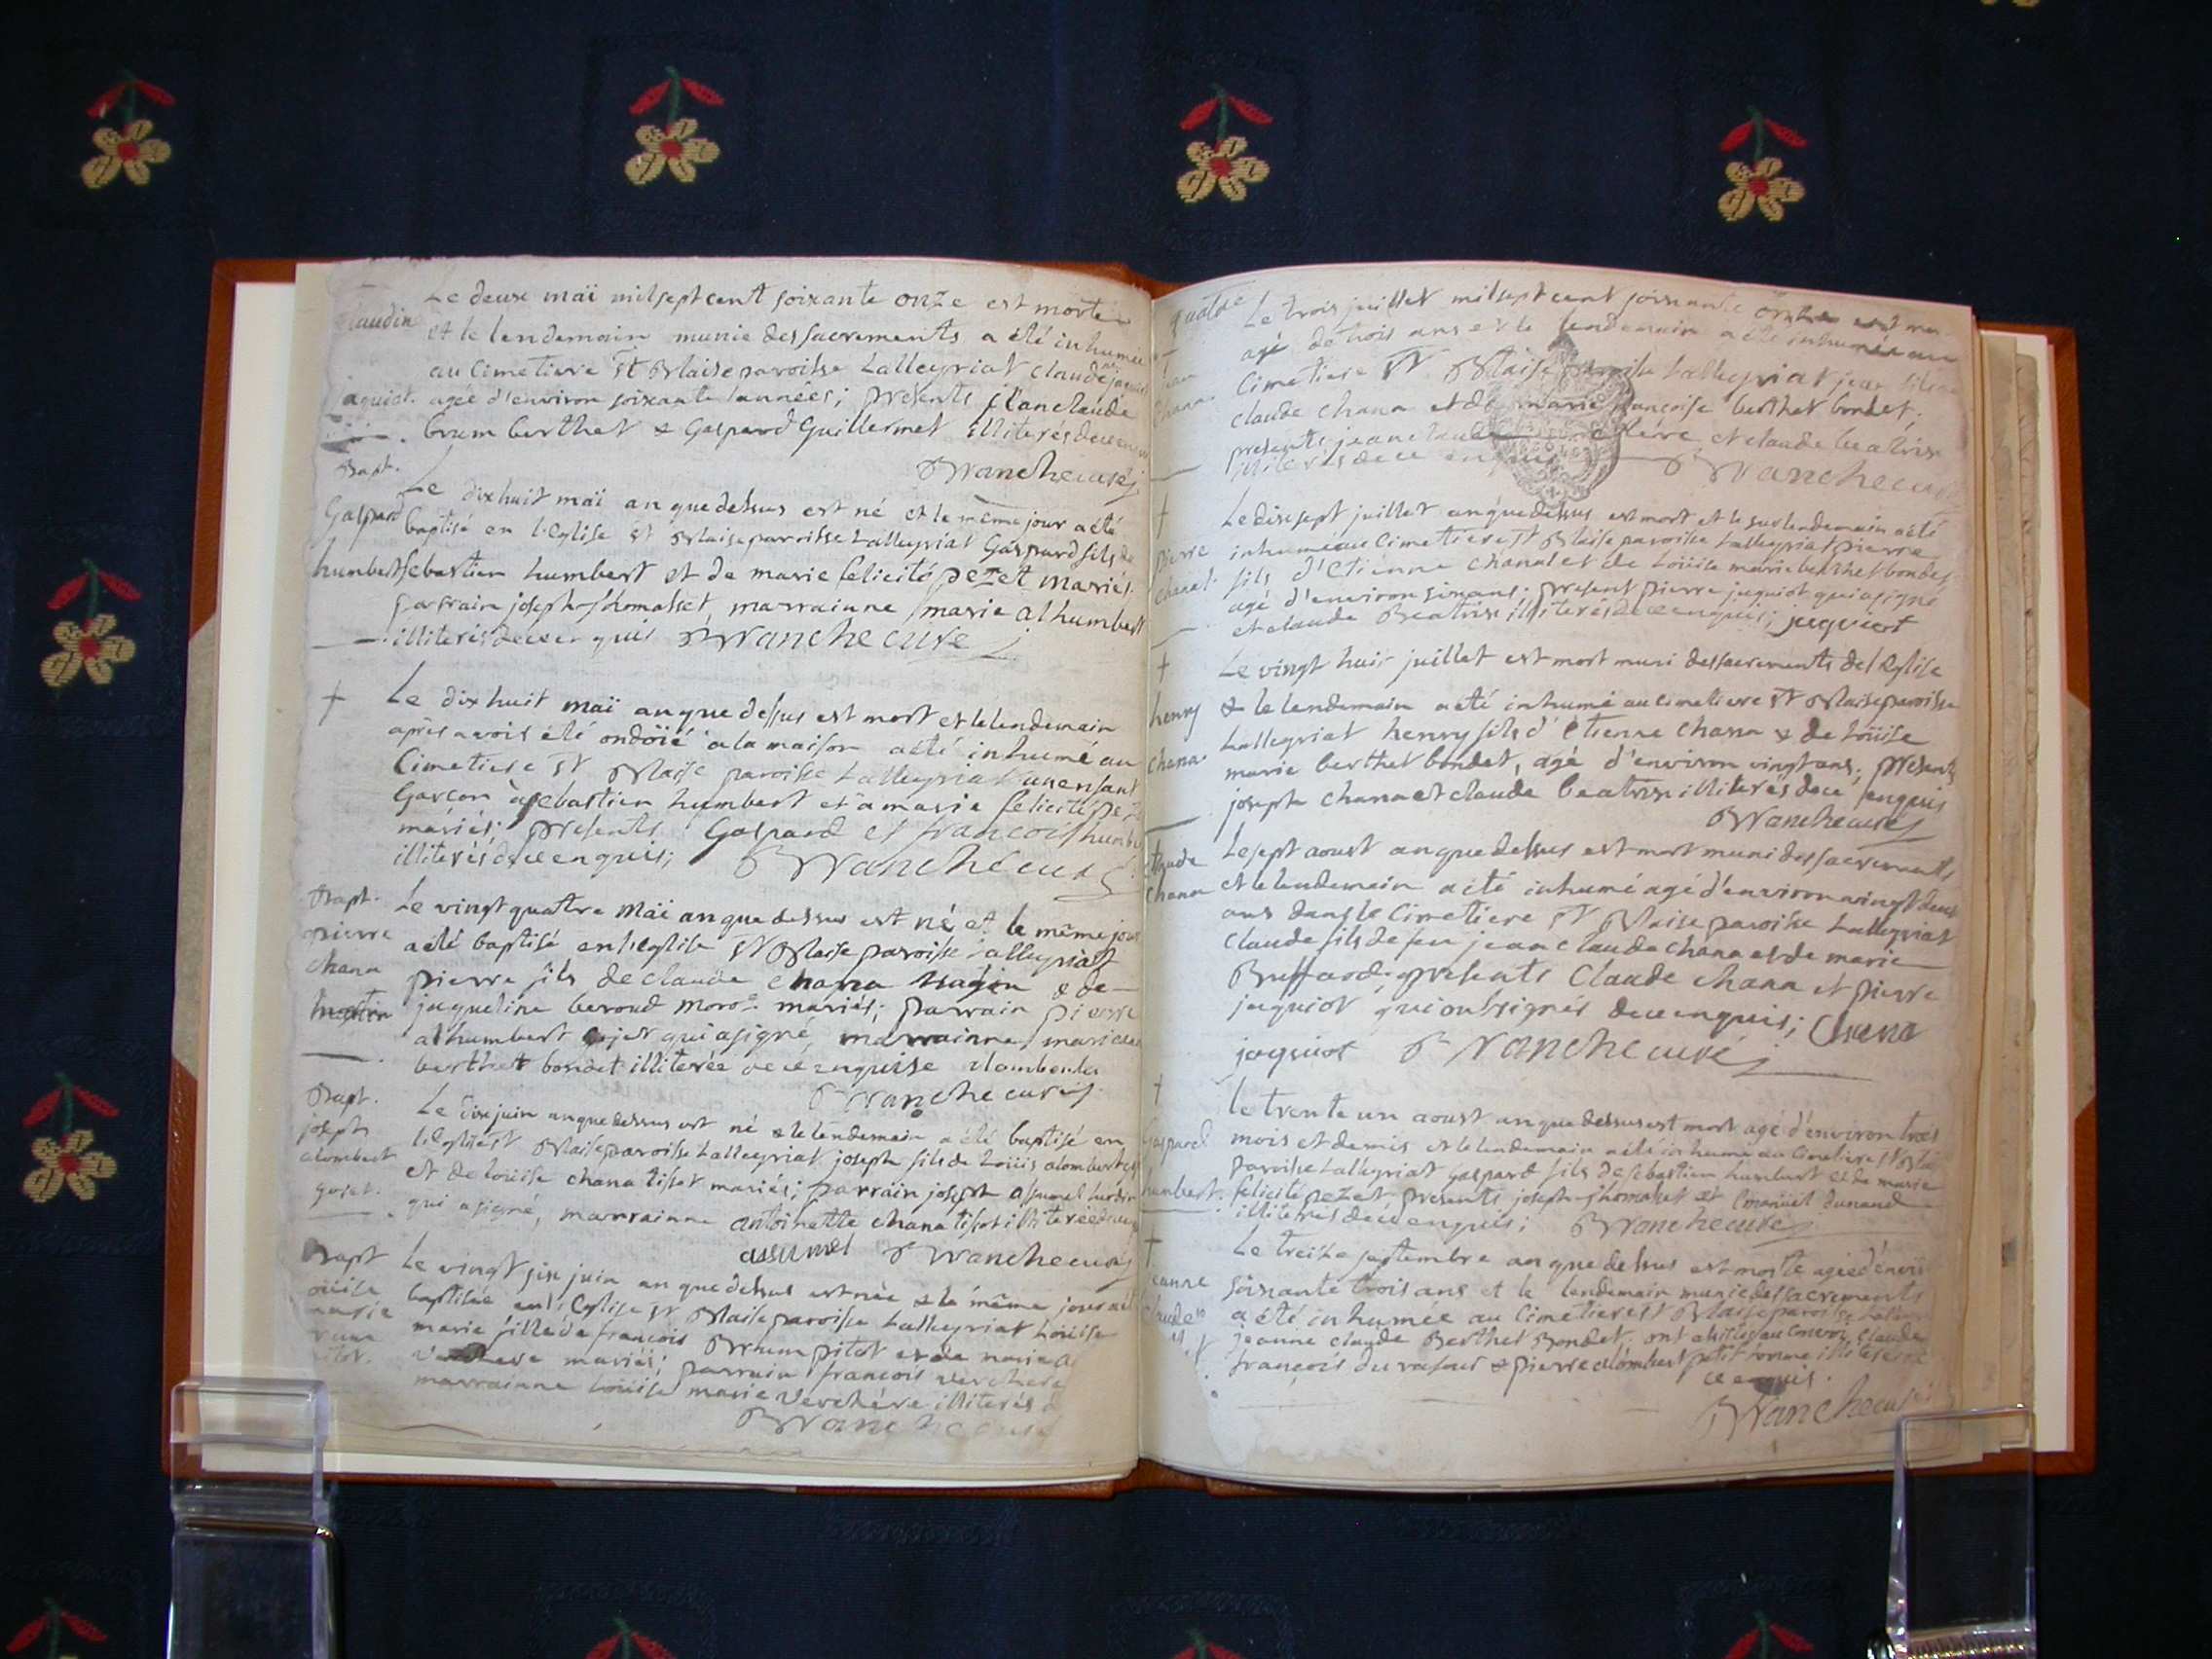 Le deux maï mil sept cent soixante onze est morte
claudin
et le lendemain munie des sacrements a été inhumée
au cimetiere st Blaise paroisse Lalleyriat claudine
jaquiot. agée d'environ soixante années; présents jean claude
brum berthet & Gaspard Guillermet illiterés de ce enquis
Bapt.
Le dix huit maï an que dessus est né et le même jour a été
Gaspard baptisé en l'eglise st Blaise paroisse Lalleyriat Gaspard fils de
humbert sebastien humbert et de marie felicité pezet mariés.
parrain joseph thomasset, marrainne marie alhumbert
illiterés de ce enquis
† Le dix huit maï an que dessus est mort et le lendemain
après avois été ondoïé a la maison a été inhumé au
Cimetiere st Blaise paroisse Lalleyriat un enfant
Garcon à sebastien humbert et a marie felicité pezet
mariés; présents: Gaspard et francois humbe
illiterés de ce enquis;
Bapt. Le vingt quatre maï an que dessus est né et le même jour
pierre a été baptisé en l'eglise st Blaise paroisse Lalleyriat
chana pierre fils de claude chana & de
jaqueline beroud mariés; parrain pierre
alhumbert gojet qui a signé, marrainne marie
berthet bondet illiterée de ce enquise alombert
Bapt. Le dix juin an que dessus est né & le lendemain a été baptisé en
joseph l'eglise st Blaise paroisse Lalleyriat joseph fils de Loüis alombert
alombert et de Loüise chana tissot mariés; parrain joseph assumel
gojet. qui a signé, marrainne antoinette chana tissot illiterée de ce
assumel
Bapt Le vingt six juin an que dessus est née & le même jour a été
baptisée en l'Eglise st Blaise paroisse Lalleyriat Loüise
marie fille de francois Brum pitot et de marie
verchere mariés; parrain francois verchere
marrainne Loüise marie verchére illiterés
quatre
Le trois juillet mil sept cent soixante onze est
agé de trois ans et le lendemain a été inhumé au
Cimetiere st Blaise paroisse Lalleyriat jean fils
chana. claude chana et de marie françoise berthet bondet;
presents jean claude et claude beatrix
illiterés de ce enquis
† Le dix sept juillet an que dessus est mort et le surlendemain a été
pierre inhumé au Cimetiere st Blaise paroisse Lalleyriat pierre
chana. fils d'Etienne chana et de Loüise marie berthet bondet
agé d'environ six ans; present pierre jaquiot qui a signé
et claude Beatrix illiterés de ce enquis; jaquiot
† Le vingt huit juillet est mort muni des sacrements de l'eglise
henry & le lendemain a été inhumé au cimetiere st Blaise paroisse
chana. Lalleyriat henry fils d'étienne chana & de Loüise
marie berthet bondet, agé d'environ vingt ans; présents
joseph chana et claude beatrix illiterés de ce enquis
claude Le sept aoust an que dessus est mort muni des sacrements
chana et le lendemain a été inhumé agé d'environ vingt deux
ans dans le cimetiere st Blaise paroisse Lalleyriat
claude fils de feu jean claude chana et de marie
Buffard; présents Claude chana et pierre
jaquiot qui ont signés de ce enquis; Chana
jaquiot
† Le trente un aoust an que dessus est mort agé d'environ trois
Gaspard mois et demis et le lendemain a été inhumé au cimetiere st
humbert. paroisse Lalleyriat Gaspard fils de sebastien humbert et de marie
felicité pezet presents joseph thomasset et Emanüel dunand
illiterés de ce enquis;
† Le treise septembre an que dessus est morte agée d'environ
jeanne soixante trois ans et le lendemain munie des sacrements
claude a été inhumée au cimetiere st Blaise paroisse
jeanne claude Berthet Bondet. ont assistés au convoi, claude
françois & pierre alombert petit homme illiterés de
ce enquis.